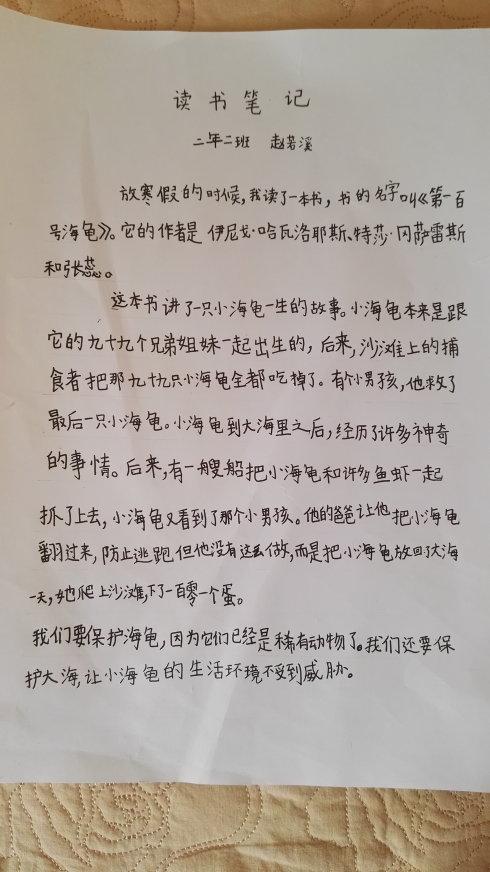 读书笔记
二年二班 赵若溪
放寒假的时候,我读了一本书,书的名字叫《第一百
号海龟》。它的作者是伊尼戈·哈瓦洛耶斯、特莎·冈萨雷斯
和张蕊。
这本书讲了一只小海龟一生的故事。小海龟本来是跟
它的九十九个兄弟姐妹一起出生的,后来,沙滩上的捕
食者把那九十九只小海龟全都吃掉了。有个小男孩,他救了
最后一只小海龟。小海龟到大海里之后,经历了许多神奇
的事情。后来,有一艘船把小海龟和许多鱼虾一起
抓了上去,小海龟又看到了那个小男孩。他的爸爸让他把小海龟
翻过来,防止逃跑但他没有这么做,而是把小海龟放回了大海
一天,她爬上沙滩,下了一百零一个蛋。
我们要保护海龟,因为它们已经是稀有动物了。我们还要保
护大海,让小海龟的生活环境不受到威胁。